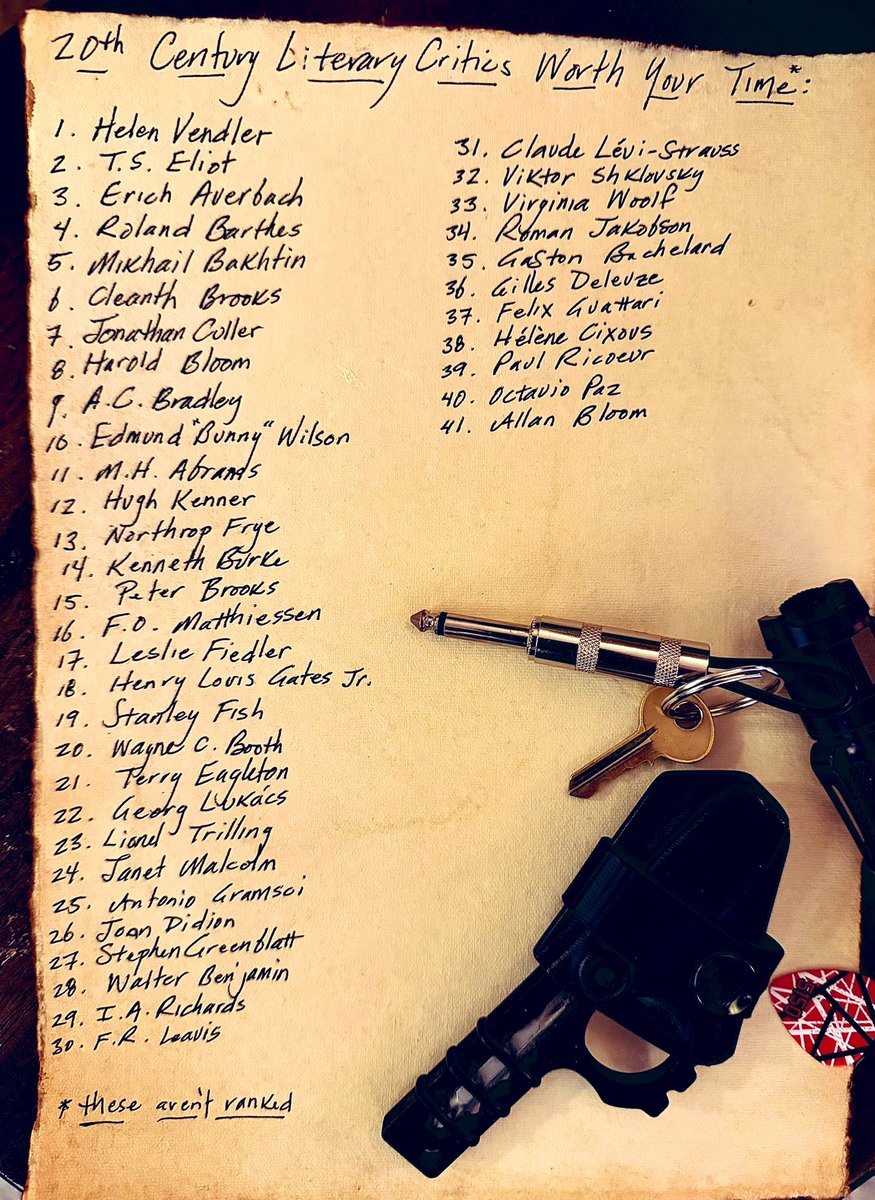 20th Century Literary Critics Worth Your Time*:
1. Helen Vendler
2. T.S. Eliot
3. Erich Averbach
4. Roland Barthes
5. Mikhail Bakhtin
6. Cleanth Brooks
7. Jonathan Culler
8. Harold Bloom
9. A.C. Bradley
10. Edmund "Bunny" Wilson
11. M.H. Abrams
12. Hugh Kenner
13. Northrop Frye
14. Kenneth Burke
15. Peter Brooks
16. F.O. Matthiessen
17. Leslie Fiedler
18. Henry Louis Gates Jr.
19. Stanley Fish
20. Wayne C. Booth
21. Terry Eagleton
22. Georg Lukács
23. Lionel Trilling
24. Janet Malcolm
25. Antonio Gramsci
26. Joan Didion
27. Stephen Greenblatt
28. Walter Benjamin
29. I.A. Richards
30. F.R. Leavis
* these aren't ranked
31. Claude Lévi-Strauss
32. Viktor Shklovsky
33. Virginia Woolf
34. Roman Jakobson
35. Gaston Bachelard
36. Gilles Deleuze
37. Felix Guattari
38. Hélène Cixous
39. Paul Ricoeur
40. Octavio Paz
41. Allan Bloom
5150